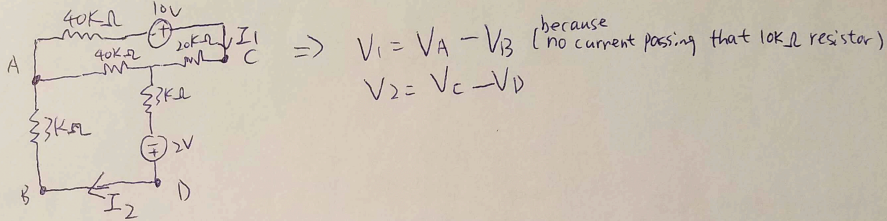 40KΩ 10V
I1
40KΩ 20KΩ
A C
3KΩ
3KΩ
2V
B D
I2
⇒ V1 = VA - VB (because no current passing that 10KΩ resistor)
V2 = VC - VD